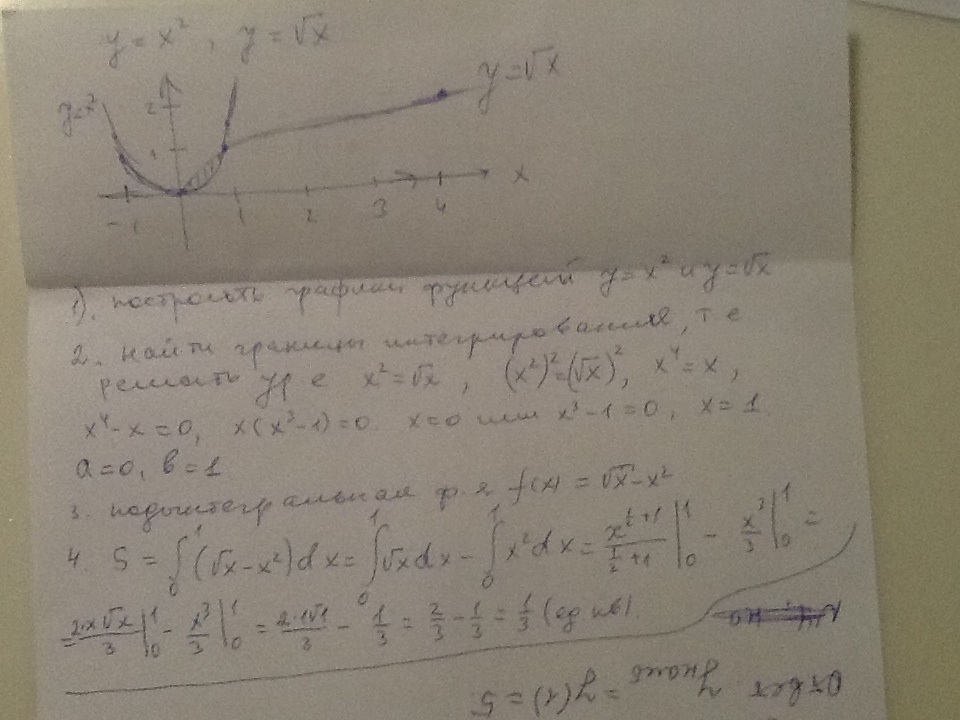 y = x², y = √x
y = √x
y=x²
2
1
x
-1 1 2 3 4
1). построить графики функций y=x² и y=√x
2. найти границы интегрирования, т е
решить ур е x²=√x, (x²)²=(√x)², x⁴=x,
x⁴-x=0, x(x³-1)=0 x=0 или x³-1=0, x=1
a=0, b=1
3. подынтегральная ф.я f(x) = √x-x²
4. S = ∫₀¹(√x-x²)dx = ∫₀¹√xdx - ∫₀¹x²dx = x^(½+1)/(½+1)|₀¹ - x³/3|₀¹ =
= 2·x√x/3|₀¹ - x³/3|₀¹ = 2·1√1/3 - 1/3 = 2/3 - 1/3 = 1/3 (ед кв)
Ответ y наиб = y(2) = 5